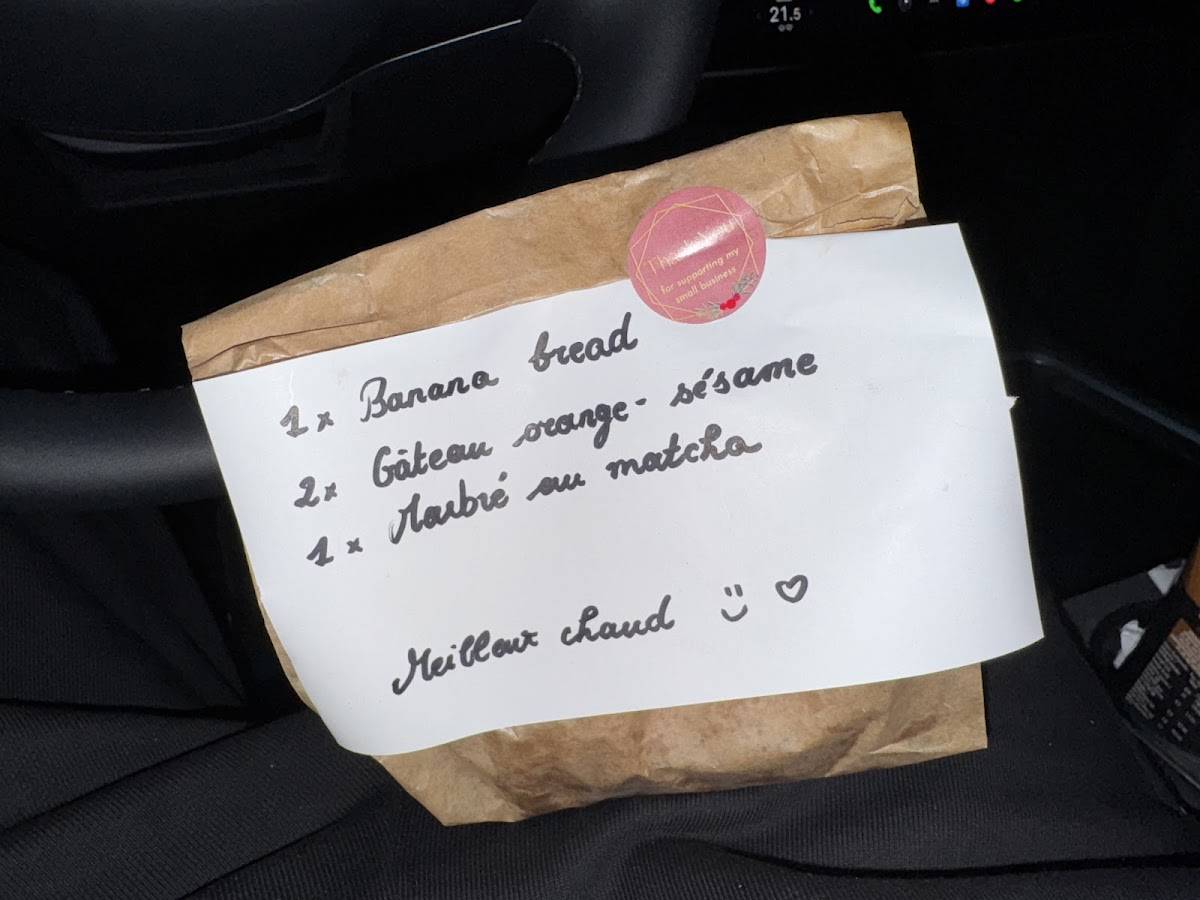 21.5
Thank You
for supporting my
small business
1 x Banana bread
2x Gâteau orange-sésame
1 x Marbré au matcha
Meilleur chaud